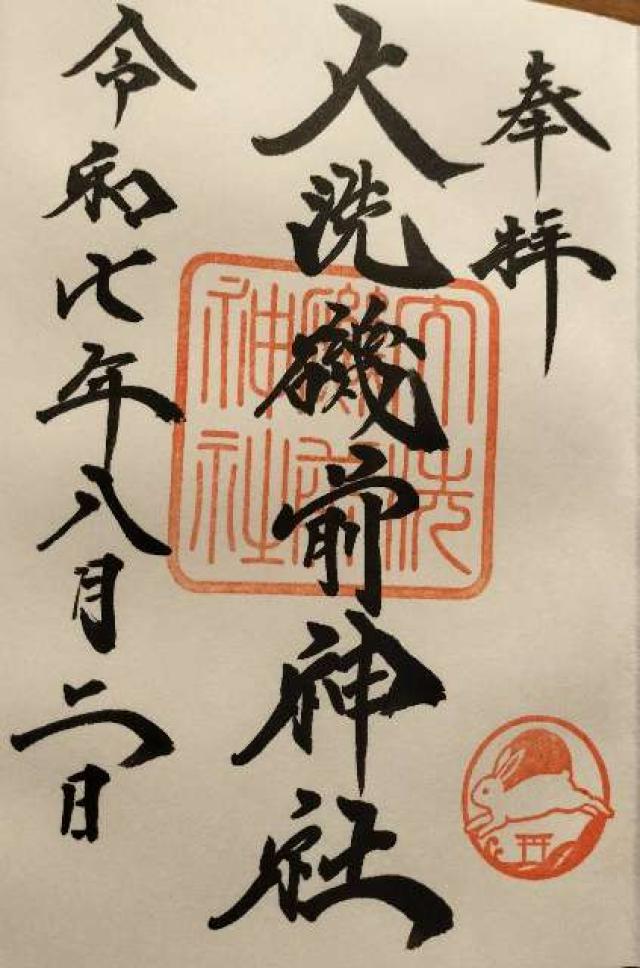 奉拝
大洗磯前神社
大洗磯前神社
令和七年八月二日